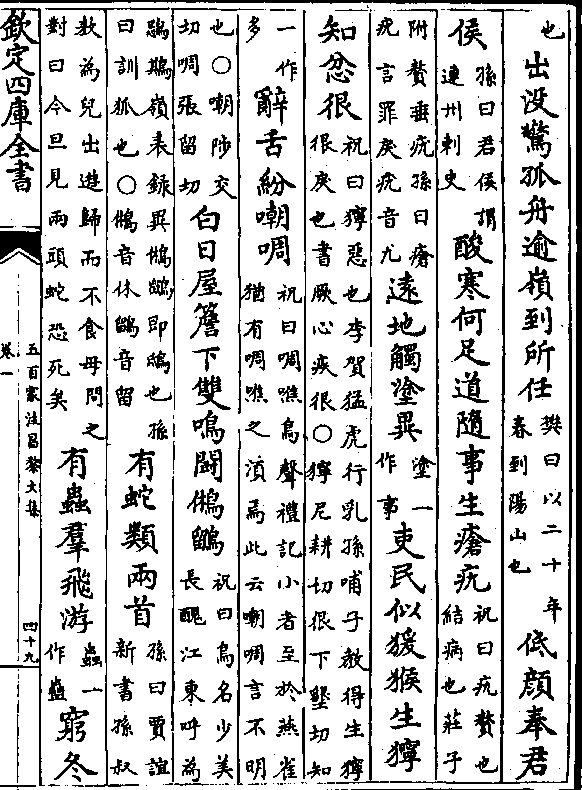 也出没驚孤舟逾嶺到所任樊曰以二十年春到陽山也低顔奉君
侯孫曰君侯謂連州刺史酸寒何足道隨事生瘡疣祝曰疣贅也結病也莊子
附贅垂疣孫曰瘡疣言罪戾疣音尤遠地觸塗異塗一作事吏民似猨猴生獰
知忿很祝曰獰惡也李賀猛虎行乳孫哺子教得生獰很戾也書厥心疾很○獰尼耕切很下墾切知
一作多辭舌紛嘲啁祝曰啁噍鳥聲禮記小者至於燕雀猶有啁噍之湏焉此云嘲啁言不明
也○嘲陟交切啁張留切白日屋簷下雙鳴鬪鵂鶹祝曰鳥名少美長醜江東呼為
鵋鶀嶺表錄異鵂鶹即鴟也孫曰訓狐也○鵂音休鶹音留有蛇類兩首孫曰賈誼新書孫叔
敖為兒出遊歸而不食母問之對曰今旦見兩頭蛇恐死矣有蟲羣飛游蟲一作蠱窮冬
欽定四庫全書
五百家注昌黎文集
卷一
四十九